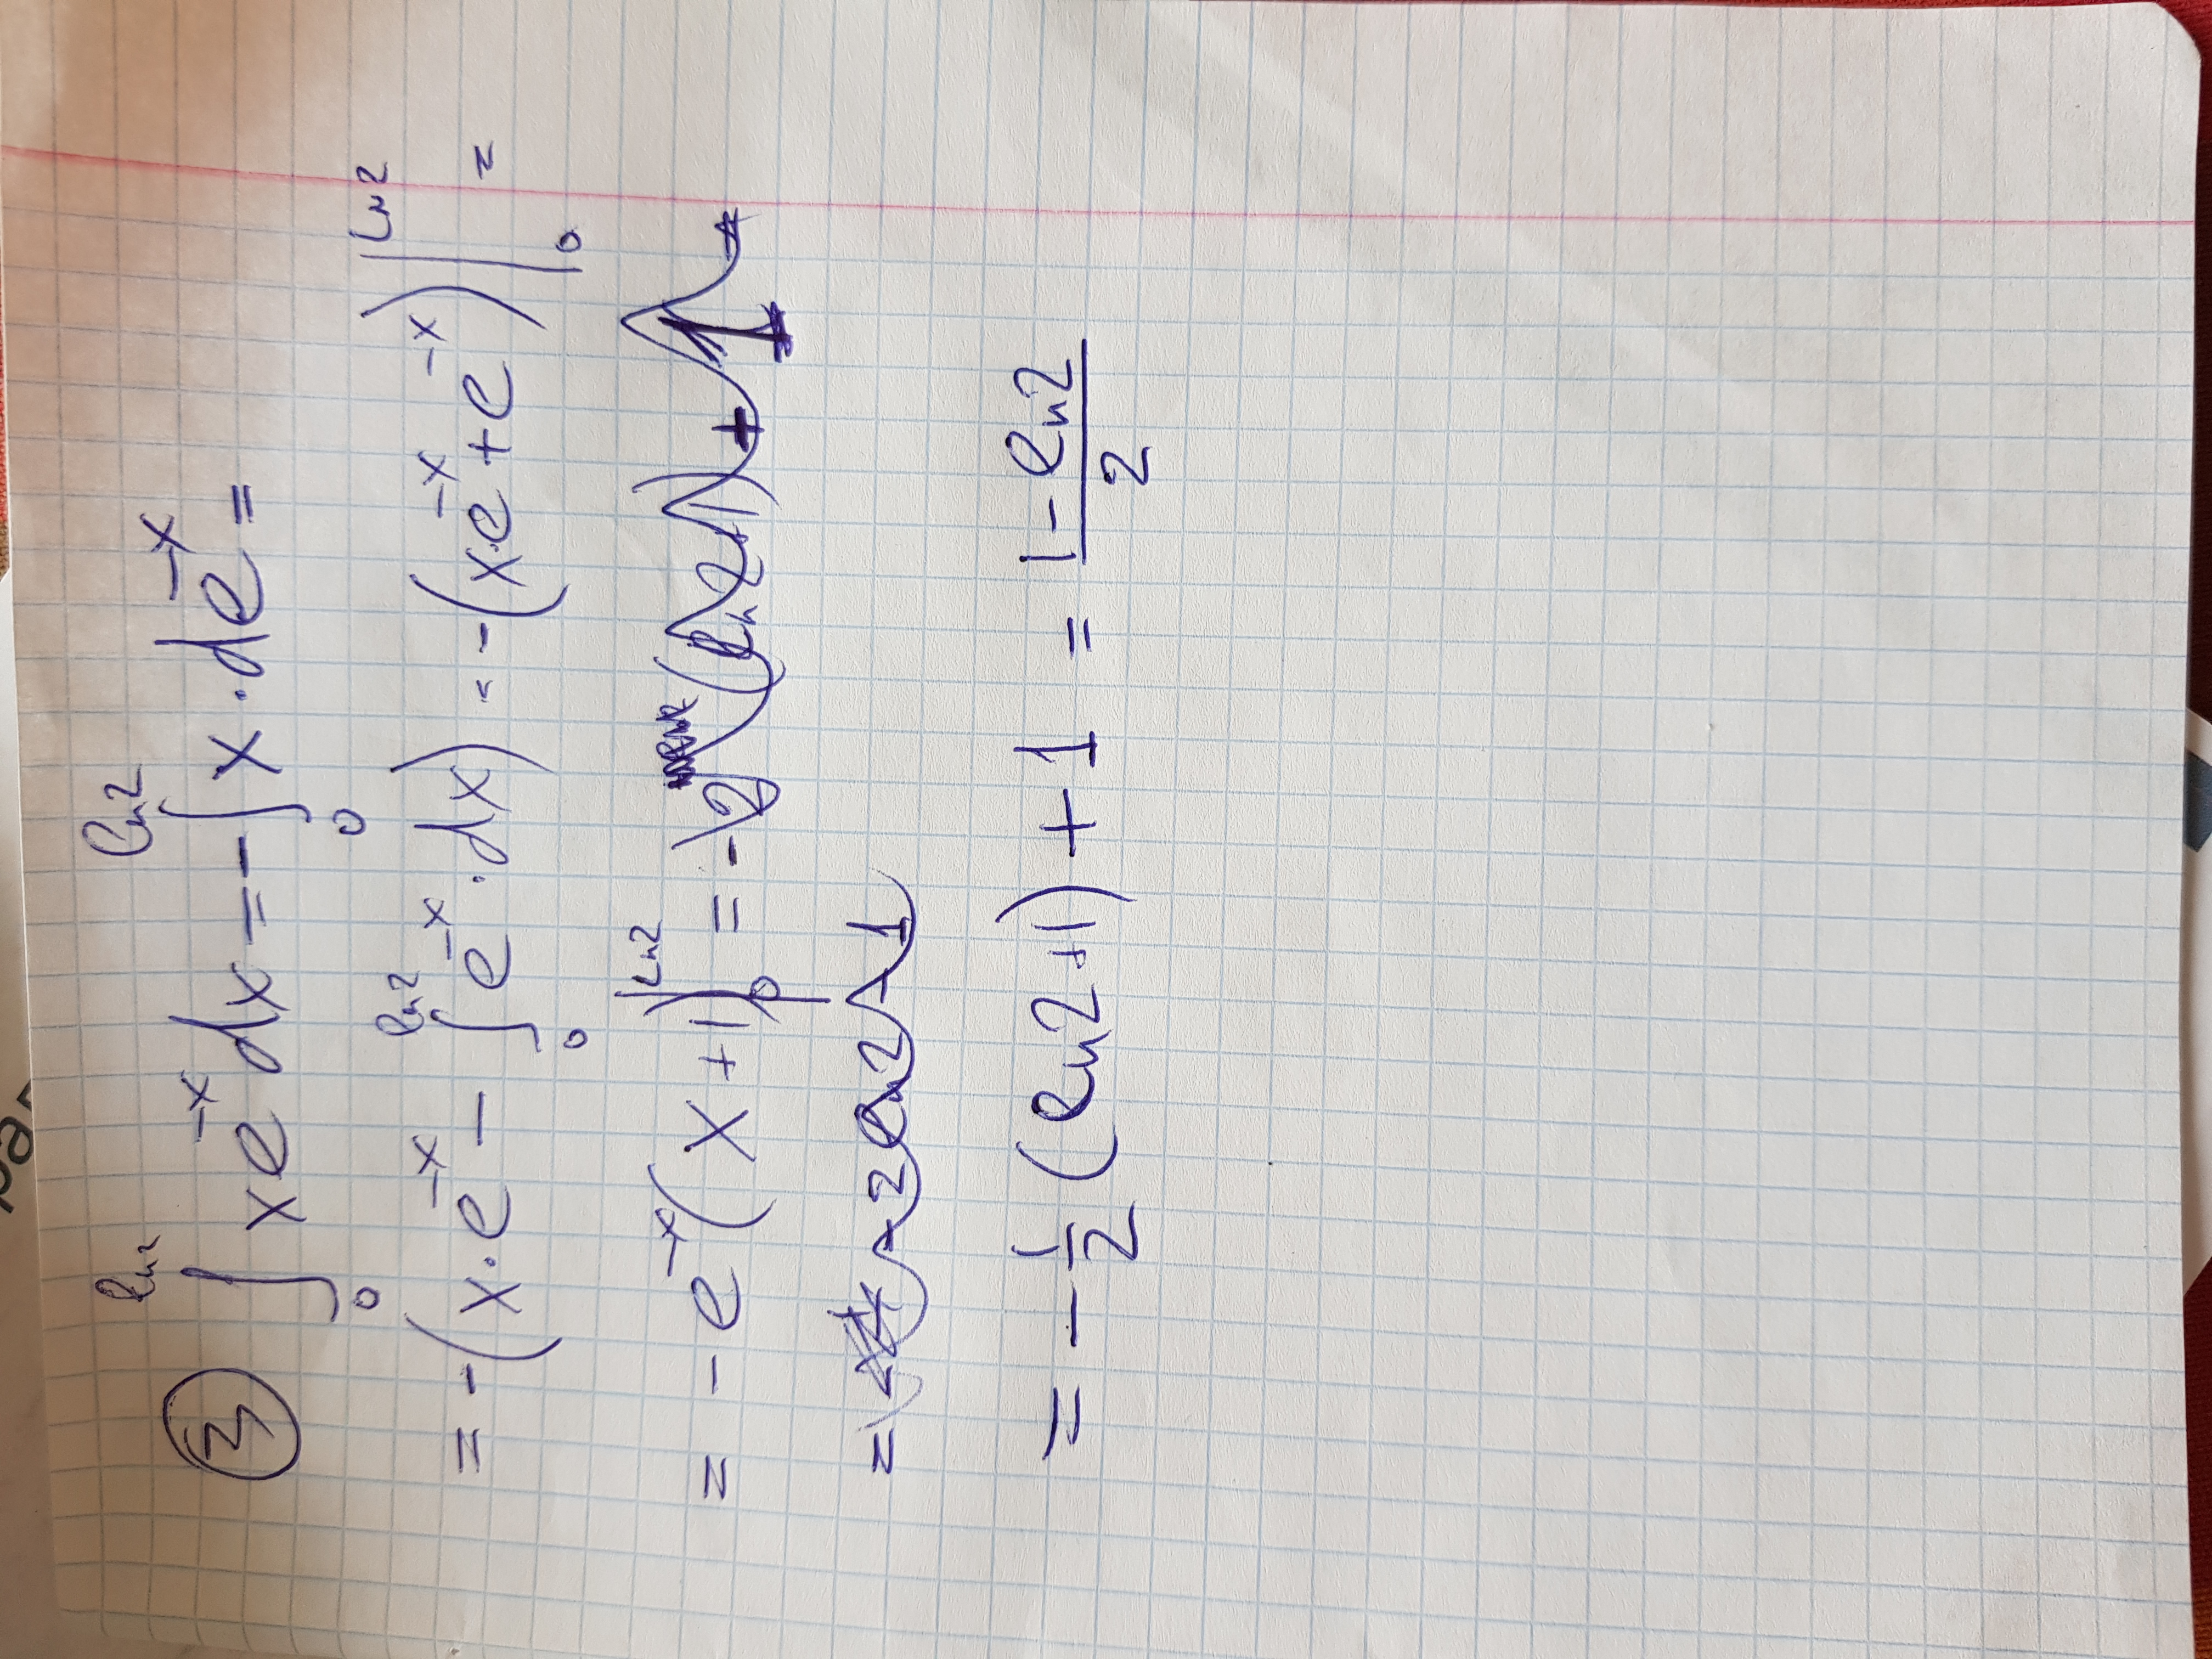 ра
③ ∫₀^{ln2} xe^{-x}dx = -∫₀^{ln2} x·de^{-x} =
= -(x·e^{-x} - ∫₀^{ln2} e^{-x}·dx) = -(x·e^{-x}+e^{-x})|₀^{ln2} =
= -e^{-x}(x+1)|₀^{ln2} = -2 (ln2+1) + 1 =
= -2ln2-1
= -\frac{1}{2}(ln2+1)+1 = \frac{1-ln2}{2}